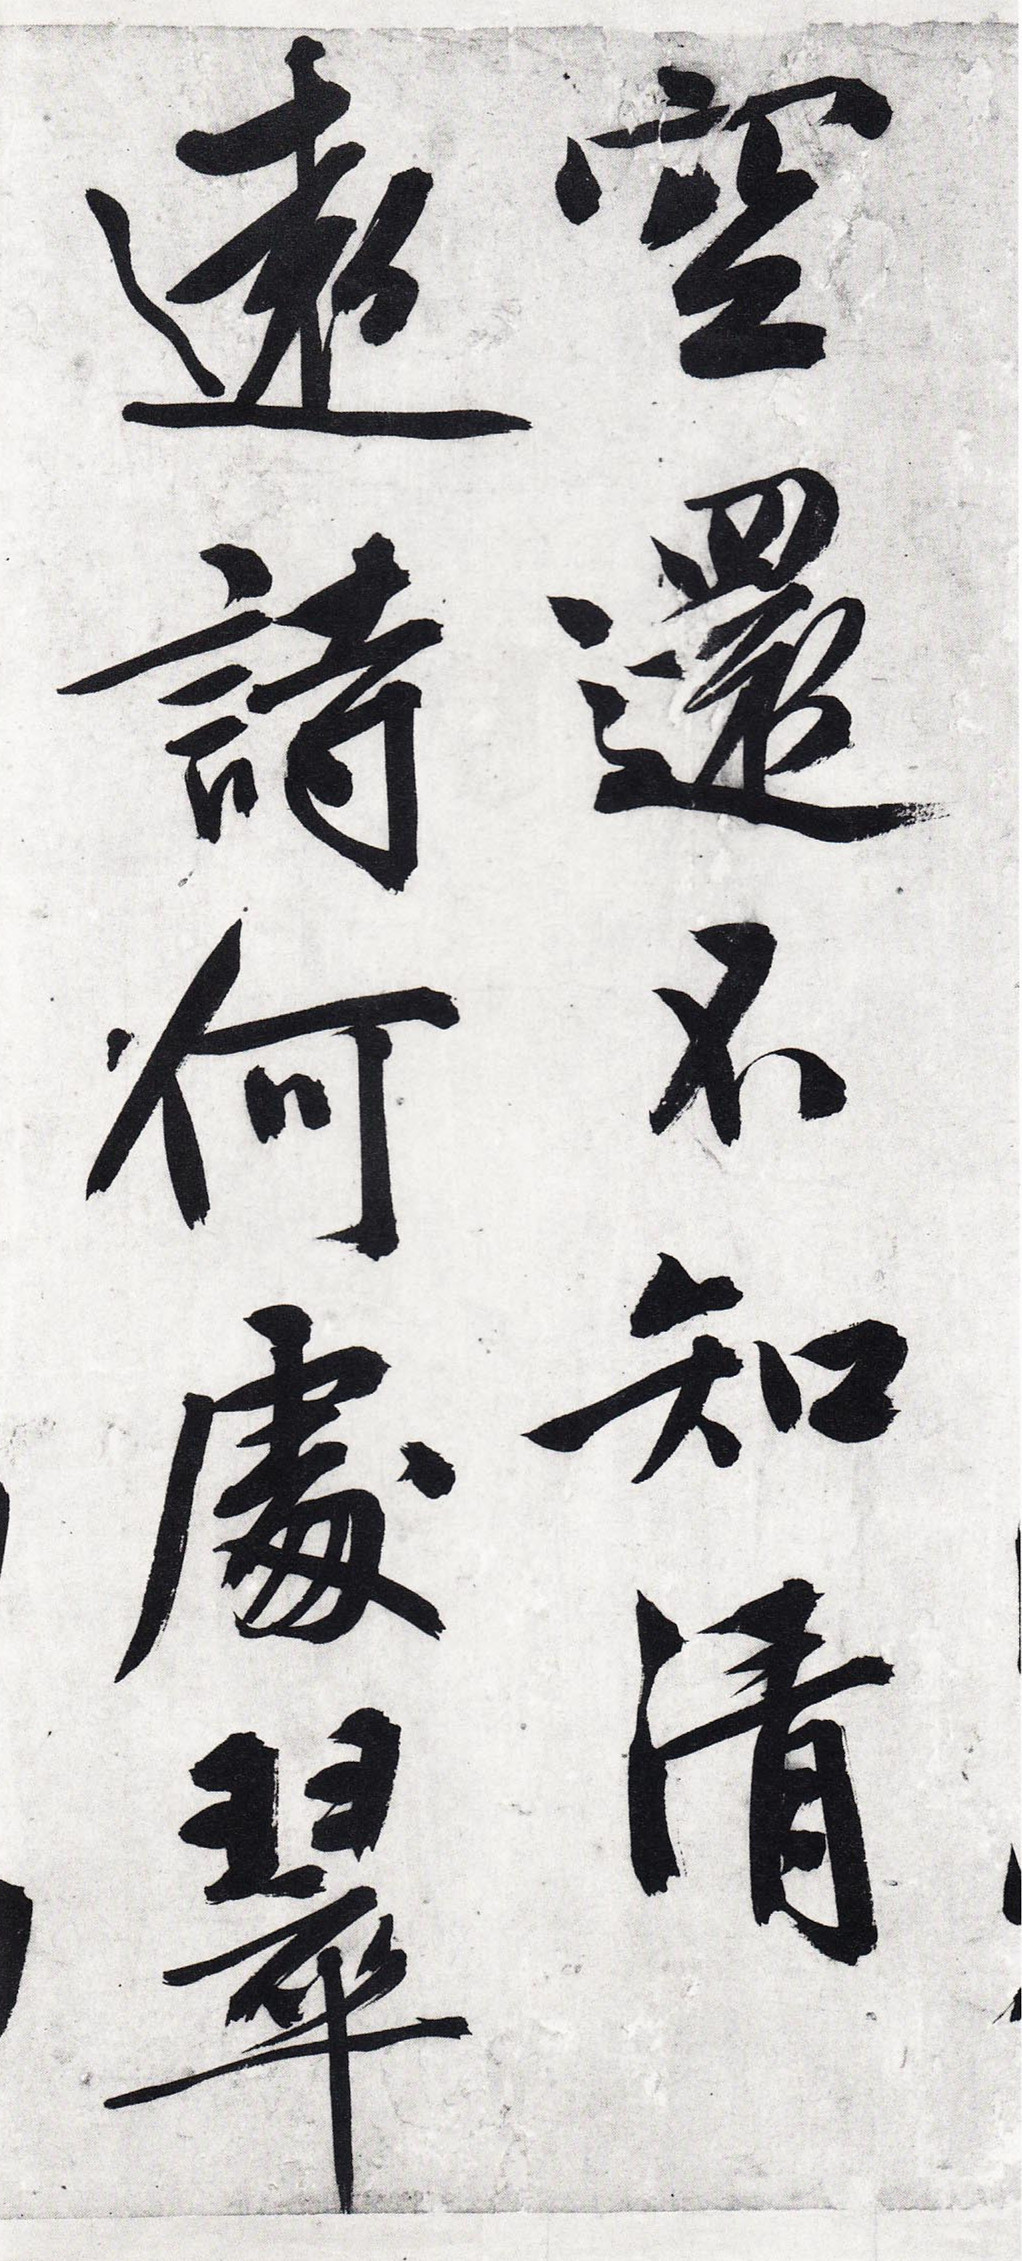 空還不知清
遠詩何處翠